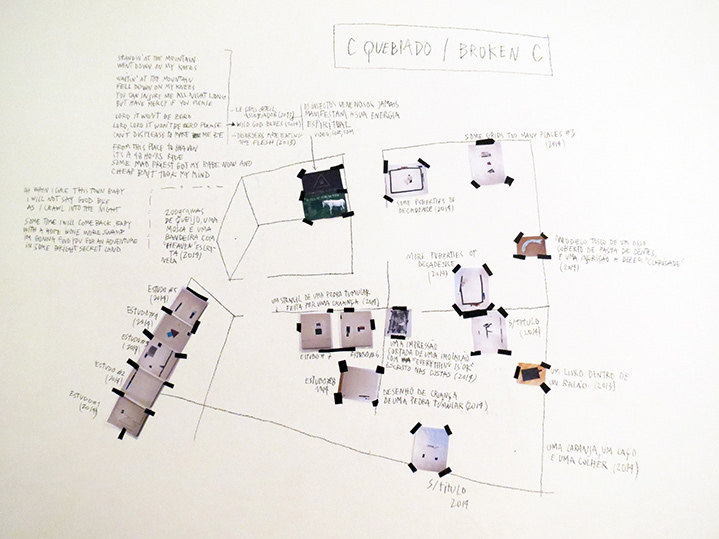 C QUEBRADO / BROKEN C
STANDIN' AT THE MOUNTAIN
WENT DOWN ON MY KNEES
WAITIN' AT THE MOUNTAIN
FELL DOWN ON MY KNEES
YOU CAN INJURE ME ALL NIGHT LONG
BUT HAVE MERCY IF YOU PLEASE
LORD IT WON'T BE ZERO
LORD, LORD IT WON'T BE ZERO PLEASE
CAN'T DISPLEASE TO MAKE ME
FROM THIS PLACE TO HEAVEN
IT'S A 48 HOURS RIDE
SOME MAD PRIEST GOT MY BABE NOW AND
CHEAP BAIT TOOK MY MIND
SO WHEN I LEAVE THIS TOWN BABY
I WILL NOT SAY GOOD BYE
AS I CRAWL INTO THE NIGHT
SOME TIME I WILL COME BACK BABY
WITH A
I'M GONNA FIND YOU FOR AN ADVENTURE
IN SOME DISTANT SECRET LAND
- LE GROS
- WILD GOD
- DISORDERS ARE EATING
THE FLESH (2013)
OS INSECTOS VENENOSOS JAMAIS
MANIFESTAM A SUA ENERGIA
ESPIRITUAL
VIDEO, COR, SOM
200 GRAMAS
DE QUEIJO, UMA
MOSCA E UMA
BANDEIRA COM
"HEAVEN" ESCRI-
TA (2019)
NELA
SOME GRIDS TOO MANY PLACES
(2019)
LOW PROPERTIES OF
DECADENSE (2019)
MORE PROPERTIES OF
DECADENSE
(2019)
MODELO TOSCO DE UM OSSO
COBERTO DE PASTA DE DENTES
E UMA INSCRIÇÃO A DIZER "CLARIDADE"
(2019)
S/TÍTULO
(2019)
UM STENCIL DE UMA PEDRA TUMULAR
FEITA POR UMA CRIANÇA (2019)
ESTUDO #5
(2019)
ESTUDO #4
(2019)
ESTUDO #3
(2019)
ESTUDO #2
(2019)
ESTUDO #1
(2019)
ESTUDO #7
ESTUDO #6
ESTUDO #8
2019
UMA IMPRESSÃO
CORTADA DE UMA IMOLAÇÃO
COM "EVERYTHING IS OK"
ESCRITO NAS COSTAS (2019)
DESENHO DE CRIANÇA
DE UMA PEDRA TUMULAR (2019)
UM LIVRO DENTRO DE
UM BALÃO (2013)
UMA LARANJA, UM LAÇO
E UMA COLHER (2019)
S/TÍTULO
2019